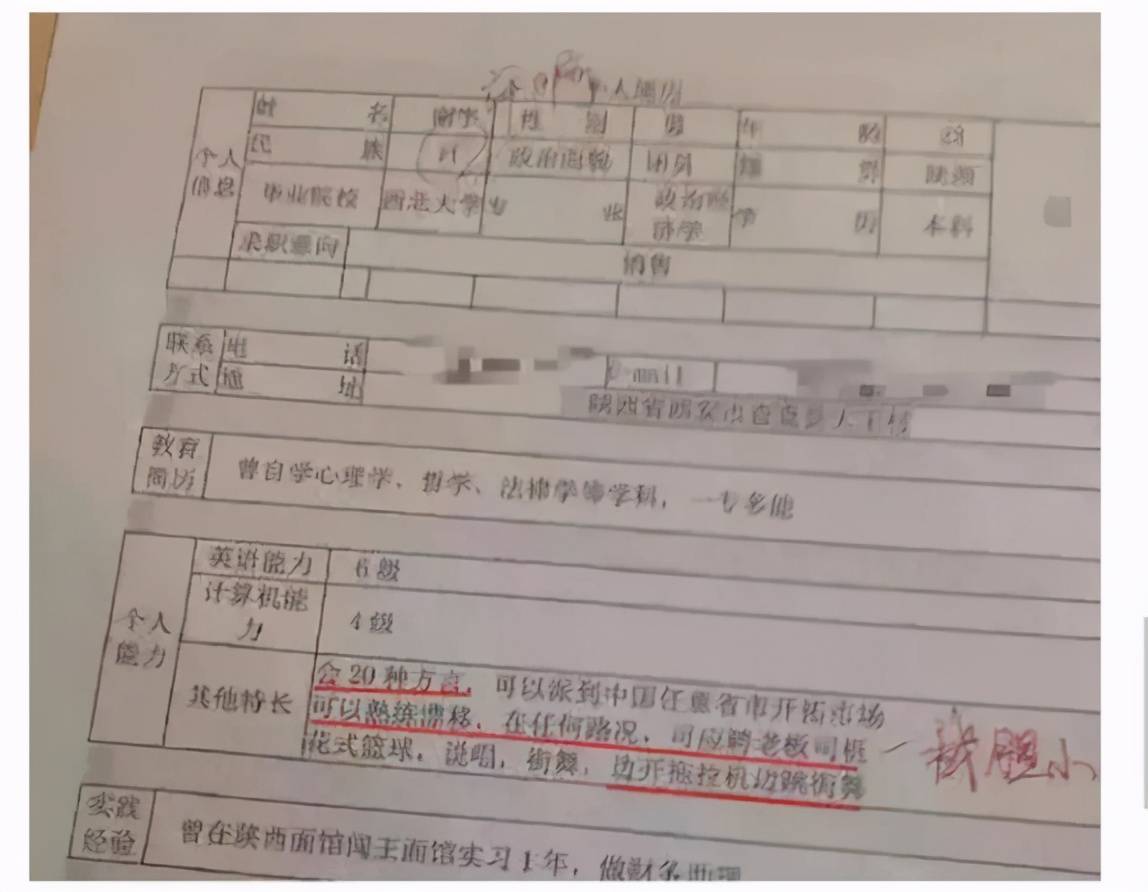 人简历
姓 名 性 别 男 年 龄
个人信息
民 族 汉 政治面貌 团员 籍 贯
毕业院校 西北大学 专 业 政治经济学 学 历 本科
求职意向 销售
联系方式
电 话 E-mail
通 址
教育简历 曾自学心理学、哲学、法律学等学科，一专多能
个人能力
英语能力 6级
计算机能力 4级
其他特长
会20种方言，可以派到中国任意省市开拓市场
可以熟练漂移，在任何路况，可应聘老板司机
花式篮球，说唱，街舞，边开拖拉机边跳街舞
我胆小
实践经验 曾在陕西面馆闯王面馆实习1年，做财务